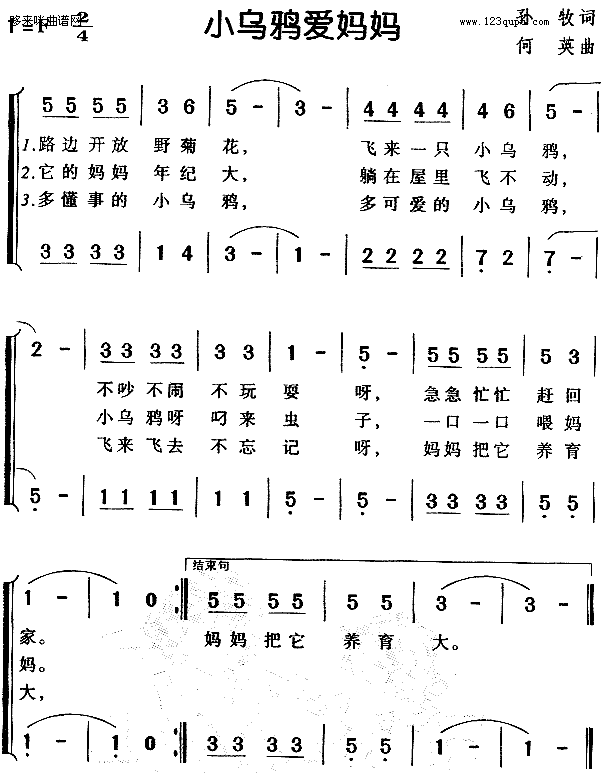 1=F 2/4
哆来咪曲谱网
www.123qupu.com
小乌鸦爱妈妈
孙 牧词
何 英曲
5 5 5 5 | 3 6 | 5 - | 3 - | 4 4 4 4 | 4 6 | 5 -
1.路边开放 野菊花, 飞来一只 小乌鸦,
2.它的妈妈 年纪大, 躺在屋里 飞不动,
3.多懂事的 小乌鸦, 多可爱的 小乌鸦,
3 3 3 3 | 1 4 | 3 - | 1 - | 2 2 2 2 | 7 2 | 7 -
2 - | 3 3 3 3 | 3 3 | 1 - | 5 - | 5 5 5 5 | 5 3
不吵不闹 不玩耍 呀, 急急忙忙 赶回
小乌鸦呀 叼来虫 子, 一口一口 喂妈
飞来飞去 不忘记 呀, 妈妈把它 养育
5 - | 1 1 1 1 | 1 1 | 5 - | 5 - | 3 3 3 3 | 5 5
结束句
1 - | 1 0 :| 5 5 5 5 | 5 5 | 3 - | 3 - ||
家。 妈妈把它 养育 大。
妈。
大,
1 - | 1 0 :| 3 3 3 3 | 5 5 | 1 - | 1 - ||